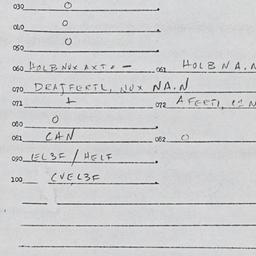 030 O
040 O
050 O
060 HOLB NUX AXT = - 061 HOLB NA. N
070 DRAJFERTL, NUX NA.N
071 1 072 AFERTL,
080 O
081 CAN 082 O
090 EL3F / HELF
100 CVEL3F